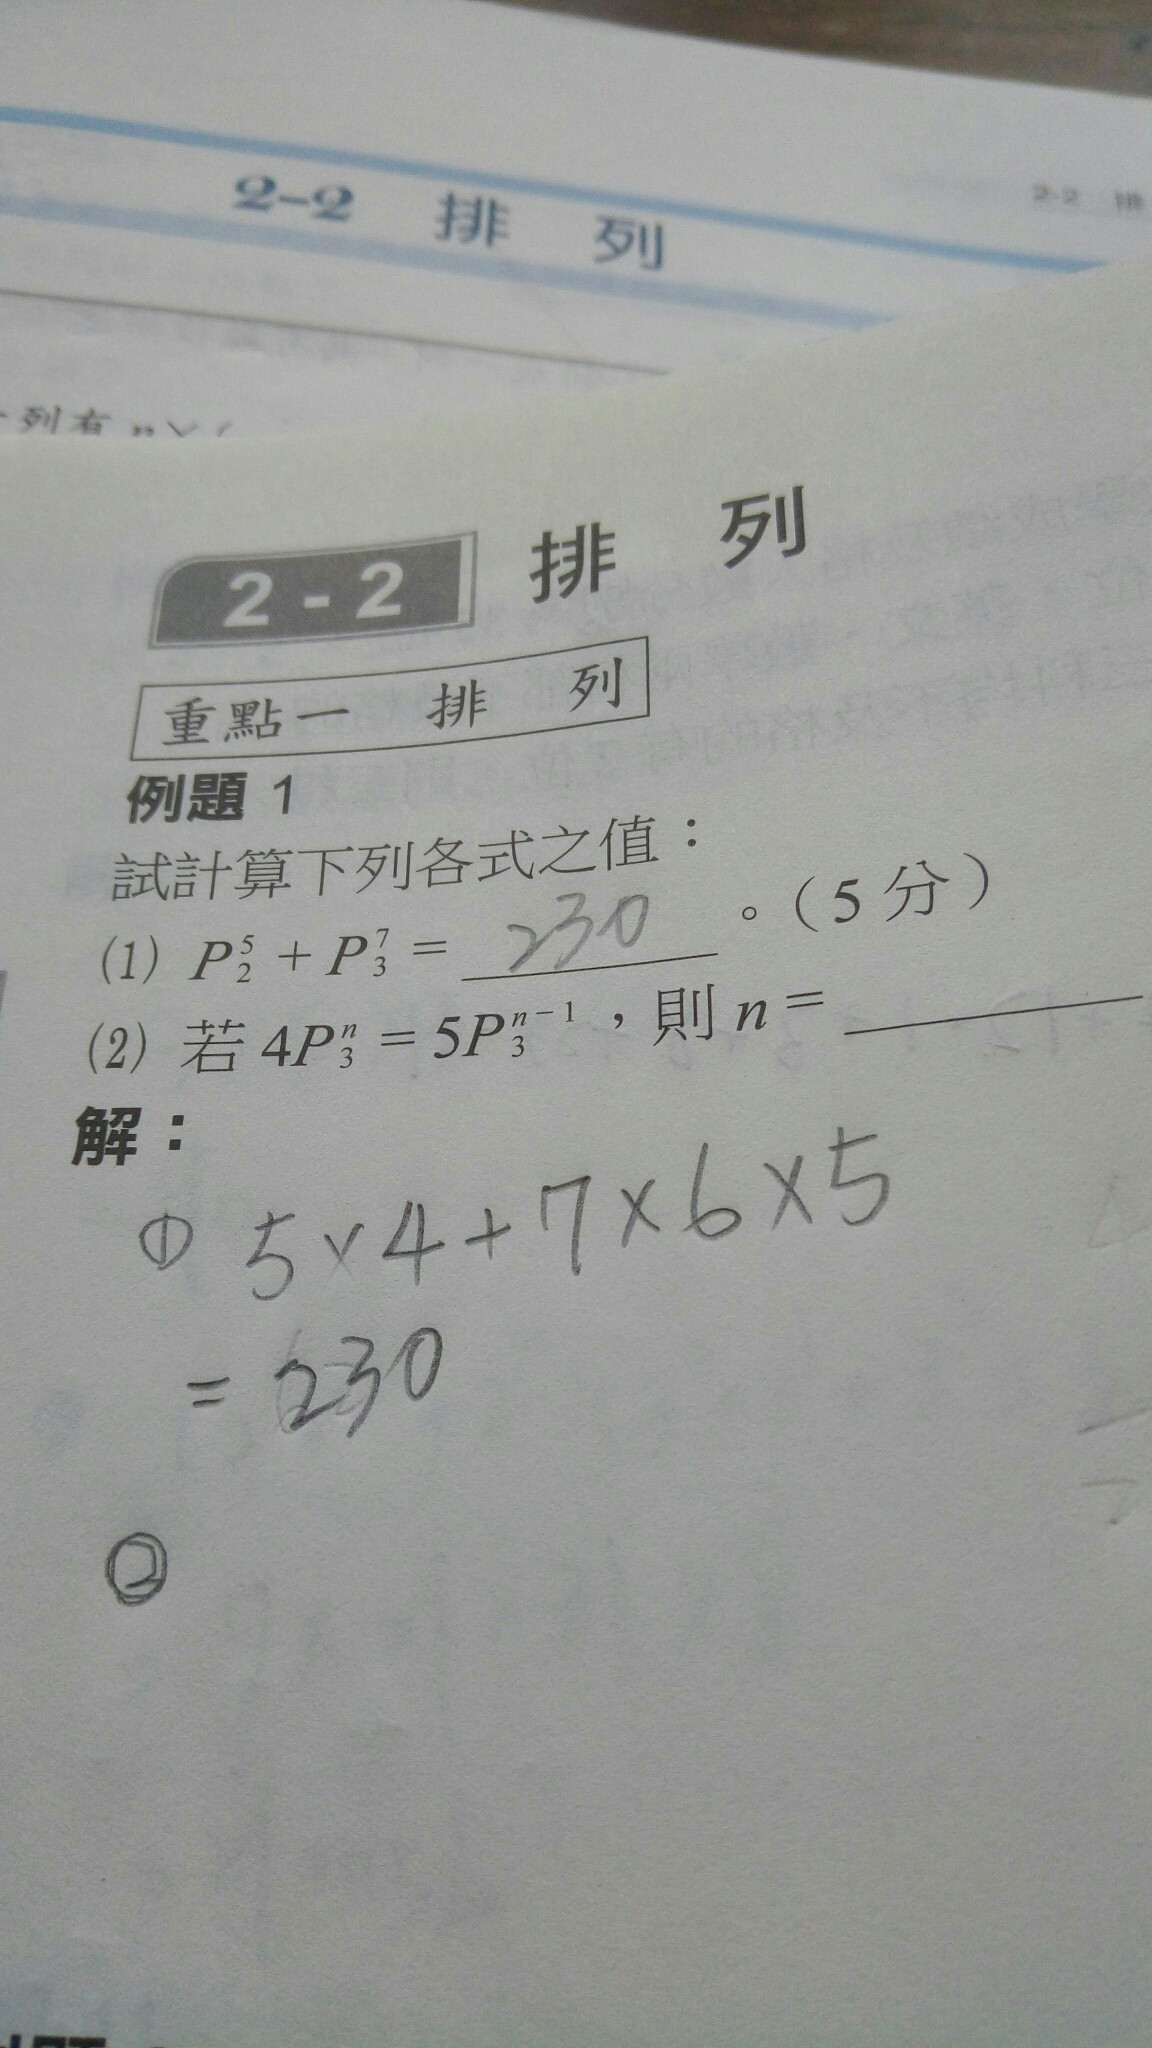 2-2 排
2-2 排 列
列有 n×(
2-2 排 列
重點一 排 列
例題 1
試計算下列各式之值：
(1) P⁵₂ + P⁷₃ = 230 。（5 分）
(2) 若 4Pⁿ₃ = 5Pⁿ⁻¹₃，則 n =
解：
① 5×4+7×6×5
= 230
②